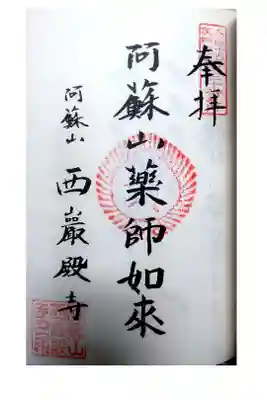 奉拝
阿蘇山薬師如来
阿蘇山
西巌殿寺